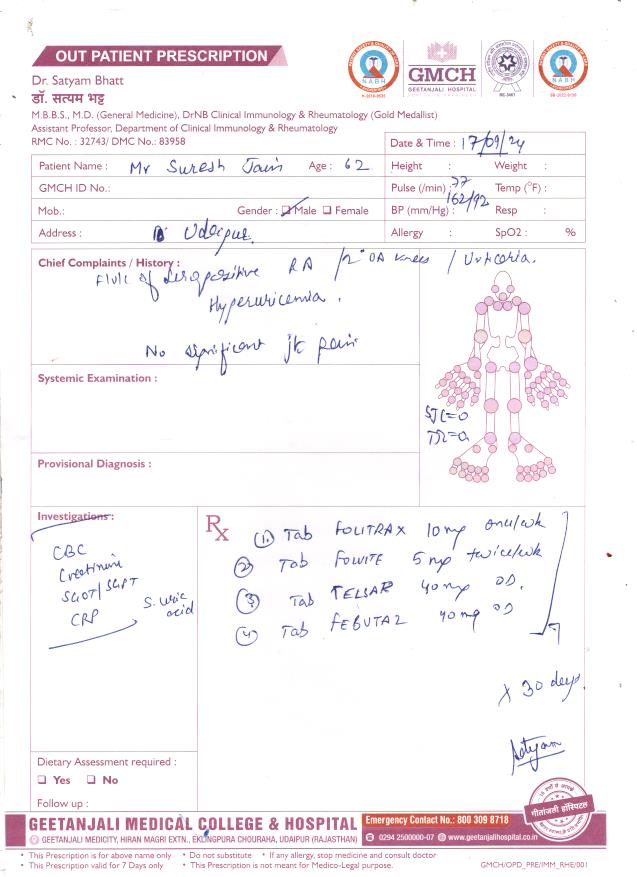 OUT PATIENT PRESCRIPTION
Dr. Satyam Bhatt
डॉ. सत्यम भट्ट
M.B.B.S., M.D. (General Medicine), DrNB Clinical Immunology & Rheumatology (Gold Medallist)
Assistant Professor, Department of Clinical Immunology & Rheumatology
RMC No. : 32743/ DMC No.: 83958
NABH
H-2018-0535
GMCH
GEETANJALI HOSPITAL
MC-3461
NABH
Date & Time : 17/09/24
Patient Name : Mr Suresh Jain Age : 62
Height : Weight :
GMCH ID No.:
Pulse (/min) : 77 Temp (°F) :
Mob.: Gender : ☐ Male ☐ Female
BP (mm/Hg) : 162/92 Resp :
Address : Udaipur
Allergy : SpO2 : %
Chief Complaints / History :
F/U/C of seropositive RA / 2° OA knees / Urticaria.
Hyperuricemia.
No significant jt pain
Systemic Examination :
SJC=0
TJC=0
Provisional Diagnosis :
Investigations :
CBC
Creatinine
SGOT/SGPT
CRP
S. uric acid
Rx
(1.) Tab FOLITRAX 10 mg once/wk
(2) Tab FOLVITE 5 mg twice/wk
(3) Tab TELSAR 40 mg OD.
(4) Tab FEBUTAZ 40 mg OD
x 30 days
Satyam
Dietary Assessment required :
☐ Yes ☐ No
Follow up :
गीतांजली हॉस्पिटल
GEETANJALI MEDICAL COLLEGE & HOSPITAL
Emergency Contact No.: 800 309 8718
GEETANJALI MEDICITY, HIRAN MAGRI EXTN., EKLINGPURA CHOURAHA, UDAIPUR (RAJASTHAN)
0294 2500000-07 www.geetanjalihospital.co.in
• This Prescription is for above name only • Do not substitute • If any allergy, stop medicine and consult doctor
• This Prescription valid for 7 Days only • This Prescription is not meant for Medico-Legal purpose.
GMCH/OPD_PRE/IMM_RHE/001